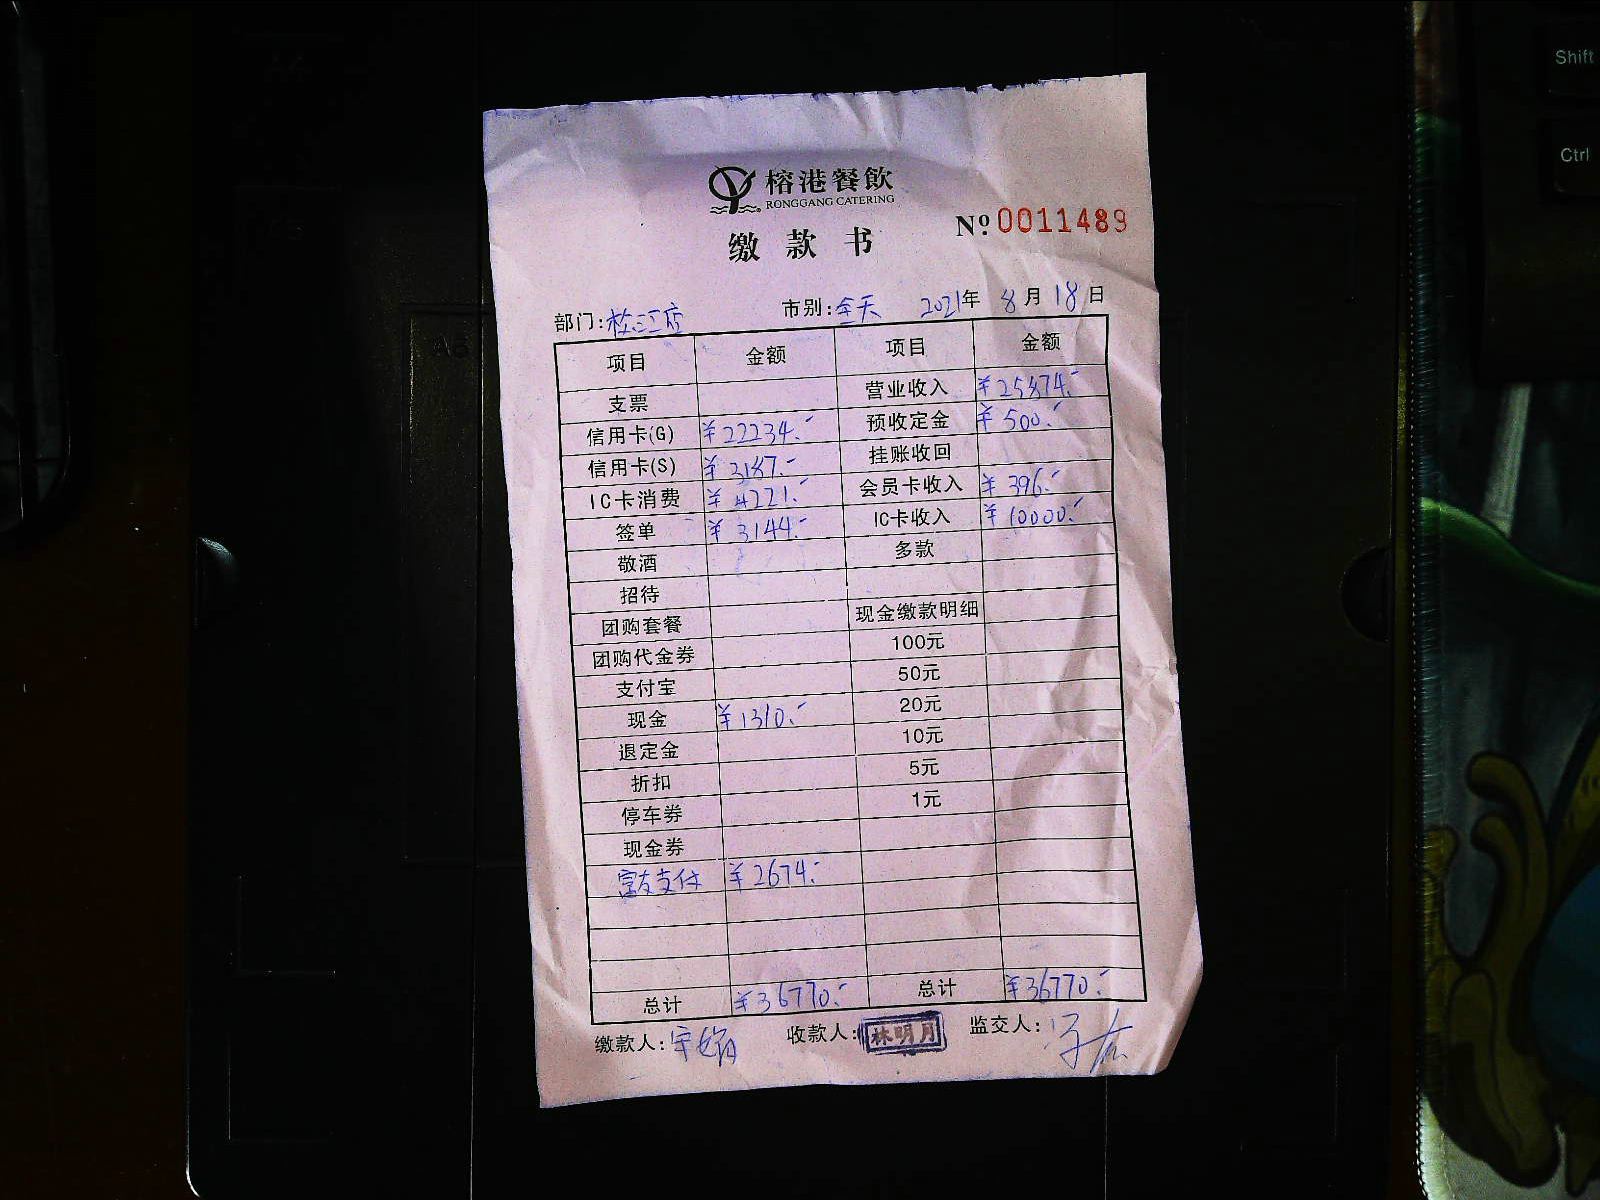 榕港餐飲
RONGGANG CATERING
№ 0011489
缴款书
部门:松江店 市别:全天 2021年 8月 18日
项目 金额 项目 金额
支票 营业收入 ¥25874.-
信用卡(G) ¥22234.- 预收定金 ¥500.-
信用卡(S) ¥3187.- 挂账收回
IC卡消费 ¥4221.- 会员卡收入 ¥396.-
签单 ¥3144.- IC卡收入 ¥10000.-
敬酒 多款
招待
团购套餐 现金缴款明细
团购代金券 100元
支付宝 50元
现金 ¥1310.- 20元
退定金 10元
折扣 5元
停车券 1元
现金券
富友支付 ¥2674.-
总计 ¥36770.- 总计 ¥36770.-
缴款人: 收款人:林明月 监交人:
Shift
Ctrl